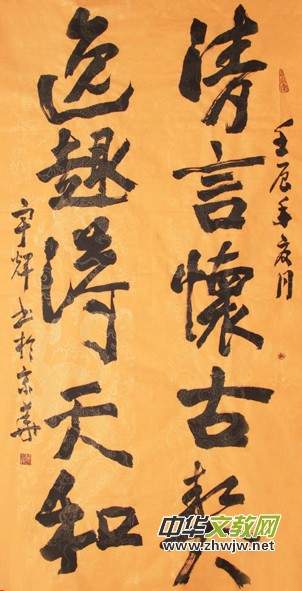 壬辰年夏月
清言懷古契
逸趣得天和
宇輝书於京華
中华文教网
www.zhwjw.net